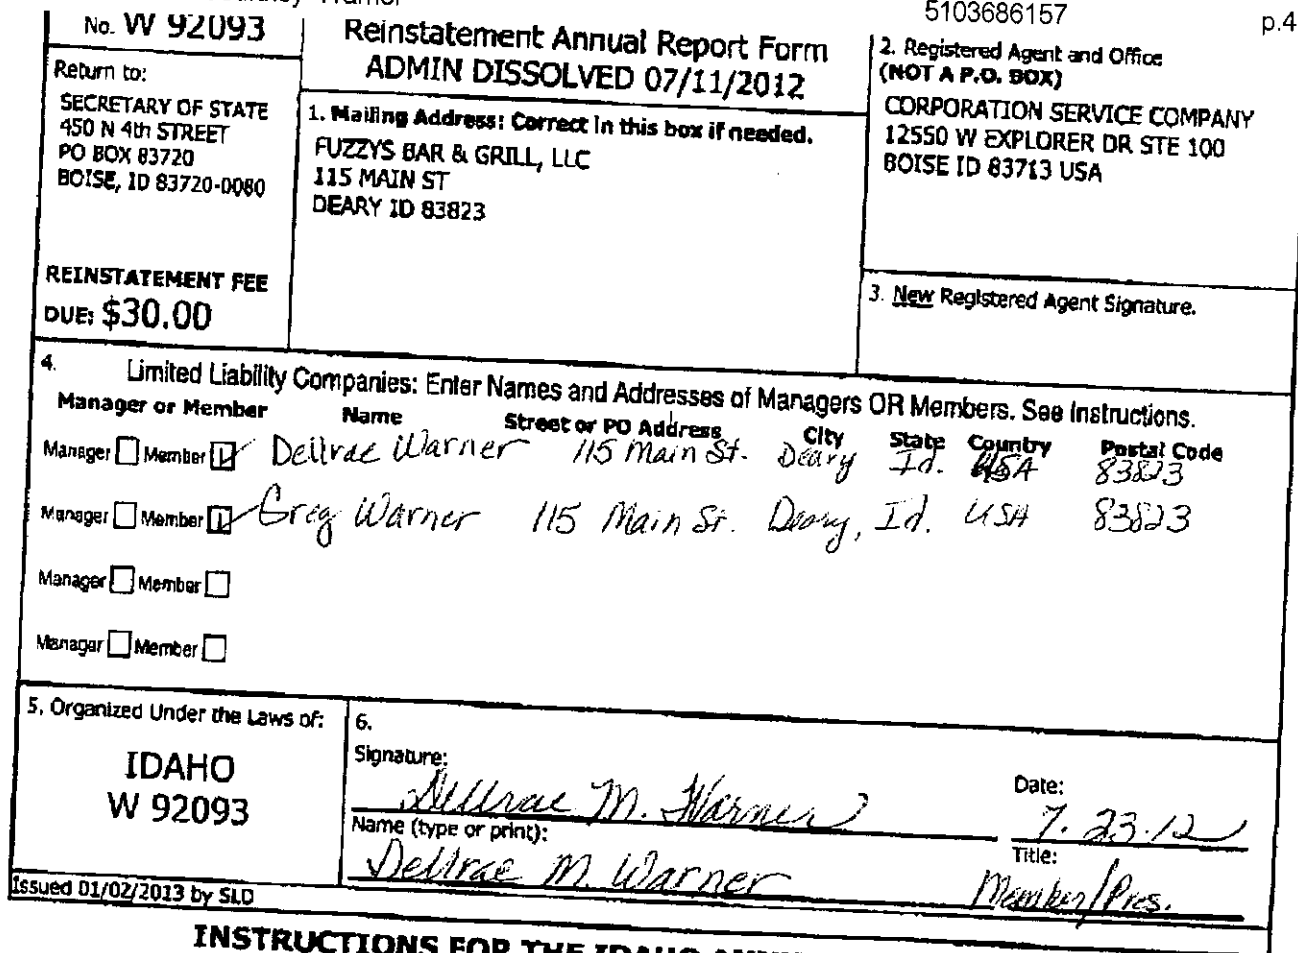 5103686157 p.4
No. W 92093
Reinstatement Annual Report Form
ADMIN DISSOLVED 07/11/2012
Return to:
SECRETARY OF STATE
450 N 4th STREET
PO BOX 83720
BOISE, ID 83720-0080
REINSTATEMENT FEE
DUE: $30.00
1. Mailing Address: Correct in this box if needed.
FUZZYS BAR & GRILL, LLC
115 MAIN ST
DEARY ID 83823
2. Registered Agent and Office
(NOT A P.O. BOX)
CORPORATION SERVICE COMPANY
12550 W EXPLORER DR STE 100
BOISE ID 83713 USA
3. New Registered Agent Signature.
4. Limited Liability Companies: Enter Names and Addresses of Managers OR Members. See Instructions.
Manager or Member Name Street or PO Address City State Country Postal Code
Manager Member Dellrae Warner 115 Main St. Deary Id. USA 83823
Manager Member Greg Warner 115 Main St. Deary, Id. USA 83823
Manager Member
Manager Member
5. Organized Under the Laws of:
IDAHO
W 92093
6.
Signature:
Dellrae M. Warner
Date:
7.23.12
Name (type or print):
Dellrae M. Warner
Title:
Member/Pres.
Issued 01/02/2013 by SLD
INSTRUCTIONS FOR THE IDAHO